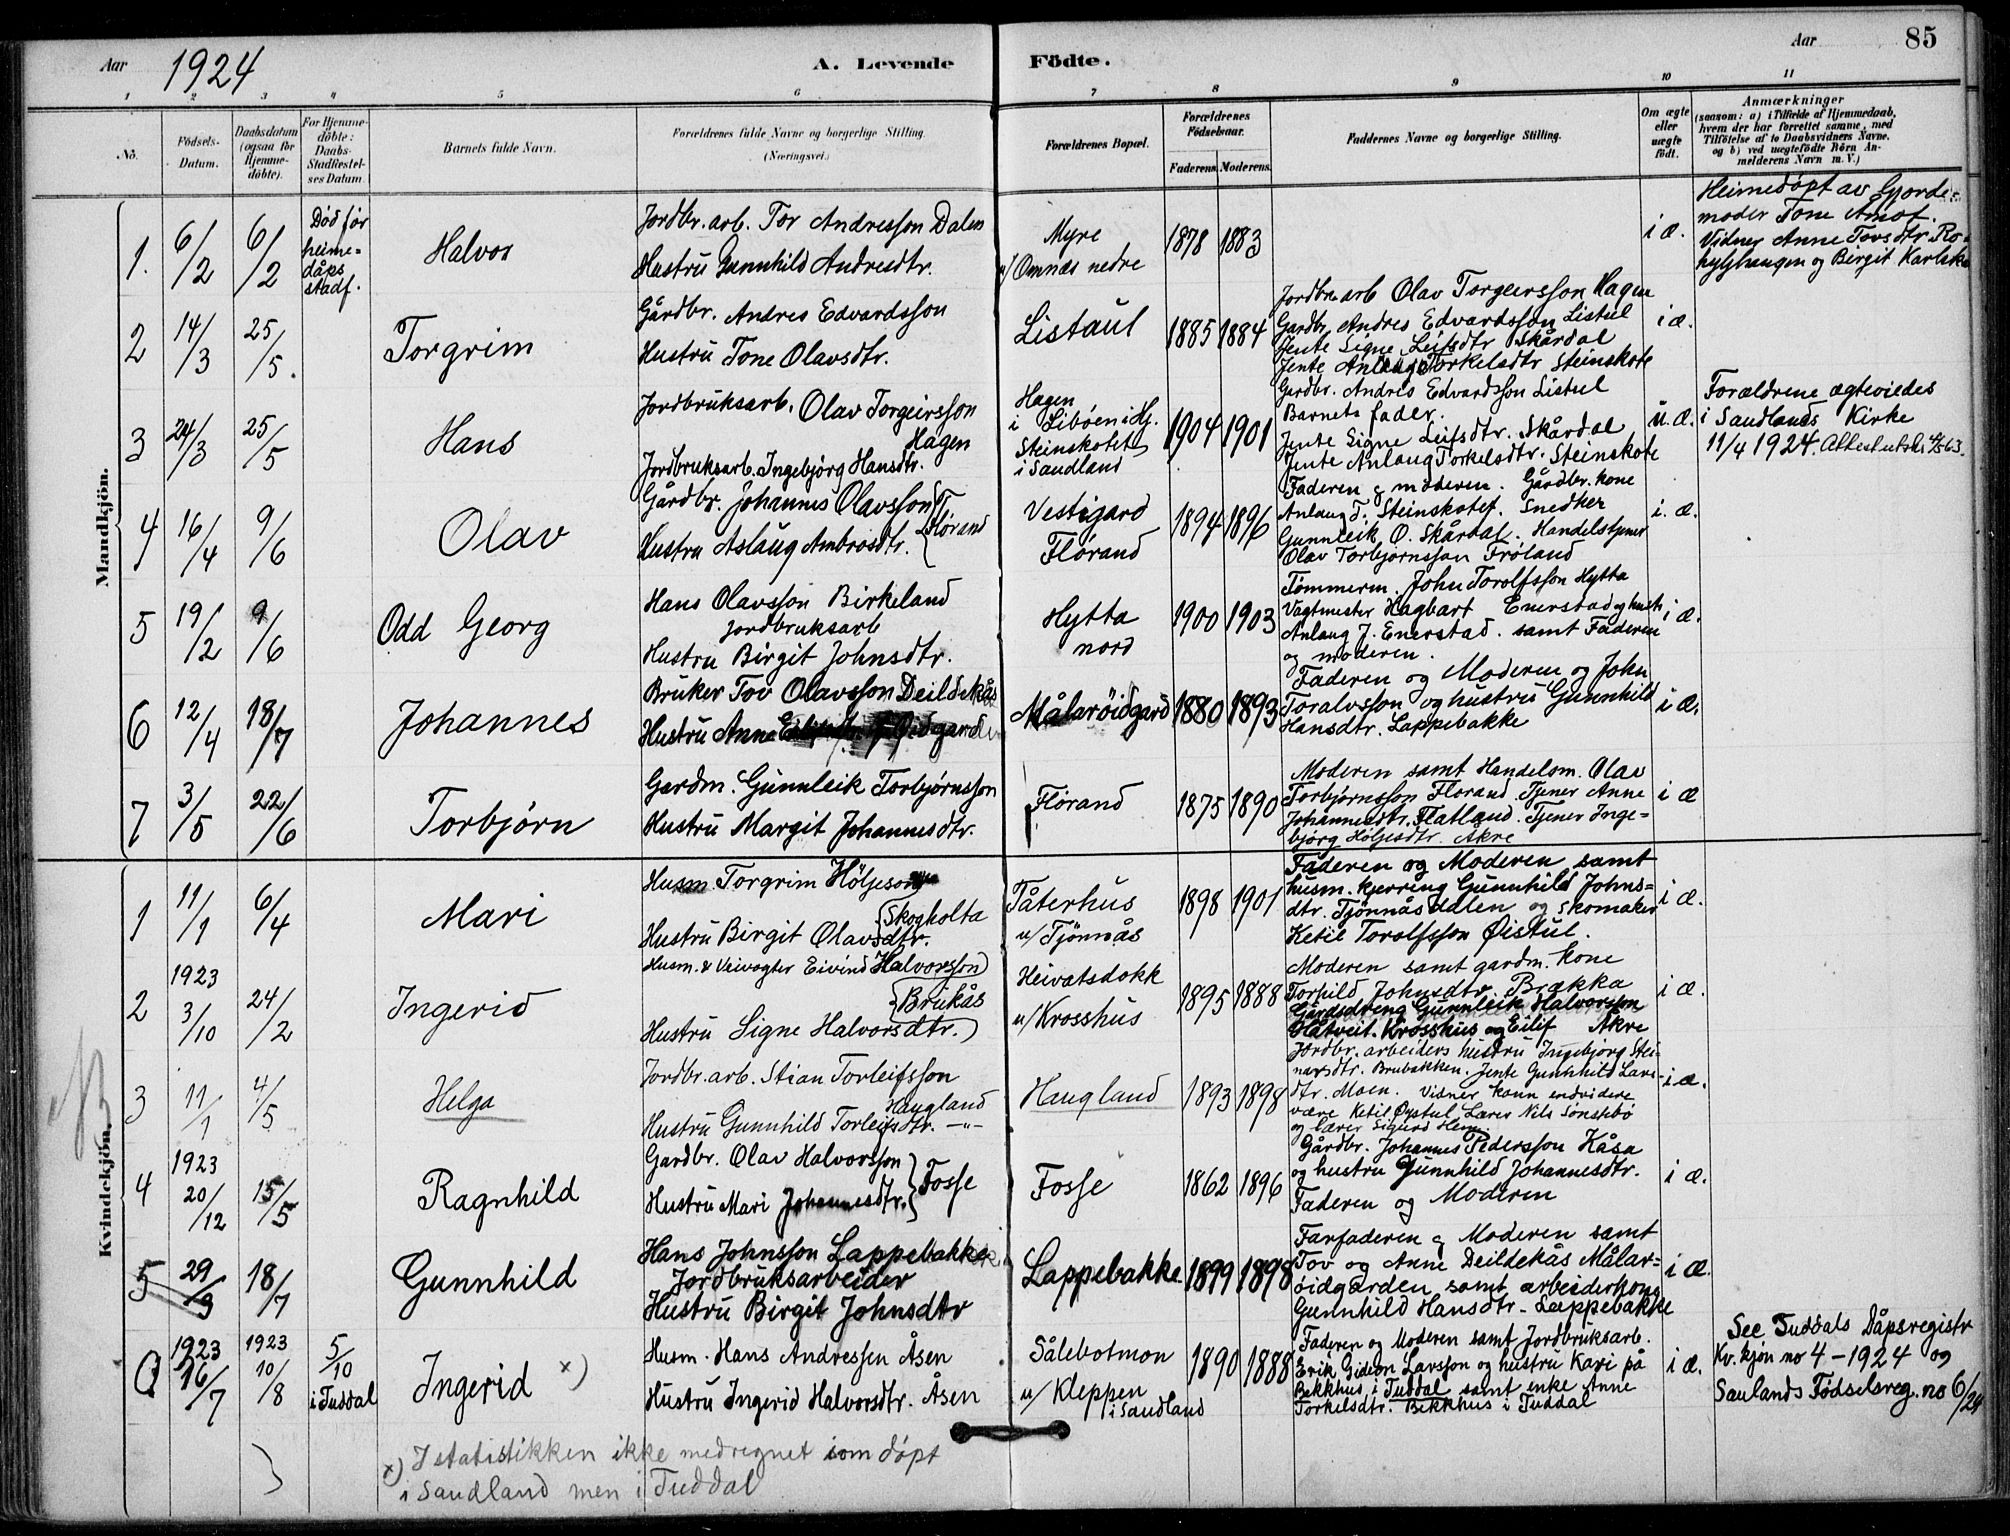 Aar 1924 A. Levende Födte. Aar 85
1 2 3 4 5 6 7 8 9 10 11
No. Födsels-Datum. Daabsdatum (ogsaa for Hjemme-döbte). For Hjemme-döbte: Daabs-Stadfæstel-ses Datum. Barnets fulde Navn. Forældrenes fulde Navne og borgerlige Stilling. (Næringsvei.) Forældrenes Bopæl. Forældrenes Födselsaar. Faderens. Moderens. Faddernes Navne og borgerlige Stilling. Om ægte eller uægte födt. Anmærkninger (saasom: a) i Tilfælde af Hjemmedaab, hvem der har forrettet samme, med Tilföielse af to Daabsvidners Navne. og b) ved uægtefödte Börn An-melderens Navn m. V.)
Mandkjön.
1. 6/2 6/2 Død før heime-dåps stadf. Halvor
Jordbr. arb. Tor Andresson Dalen
Hustru Gunnhild Andresdtr.
Myre
u/ Omnæs nedre
1878 1883 i æ.
Heimedøpt av Gjorde-
moder Tone Åmot.
Vidner Anne Tovsdtr. Ro-
hylhaugen og Birgit Karlsk
2 14/3 25/5. Torgrim
Gårdbr. Andres Edvardsson
Hustru Tone Olavsdtr.
Listaul 1885 1884
Jordbr. arb Olav Torgeirsson Hagen
Gardbr. Andres Edvardsson Listul
Jente Signe Leifsdtr Skårdal
Jente Anlaug Torkelsdtr Steinskote
i æ.
3 24/3 25/5 Hans
Jordbruksarb. Olav Torgeirsson
Hagen
Jordbruksarb. Ingebjørg Hansdtr.
Hagen
i Libøen i Hj.
Steinskotet
i Saudland
1904 1901
Gardbr. Andres Edvardsson Listul
Barnets fader.
Jente Signe Leifsdtr. Skårdal
Jente Anlaug Torkelsdtr. Steinskote
u. æ.
Forældrene ægteviedes
i Saudlands Kirke
11/4 1924.
4 16/4 9/6 Olav
Gårdbr. Johannes Olavsson
Hustru Aslaug Ambrosdtr. Flørand
Vestigard
Flørand
1894 1896
Faderen og moderen. Gårdbr. kone
Anlaug T. Steinskotet. Snedker
Gunnleik O. Skårdal. Handelstjener
Olav Torbjørnsson Frøland
i. æ.
5 19/2 9/6 Odd Georg
Hans Olavsson Birkeland
Jordbruksarb
Hustru Birgit Johnsdtr.
Hytta
nord
1900 1903
Tømmerm. John Torolfsson Hytta
Vagtmester Hagbart Enerstad og hustr
Anlaug J. Enerstad. samt Faderen
og moderen.
i æ.
6 12/4 18/7 Johannes
Bruker Tov Olavsson Deildekås
Hustru Anne
Målarøidgard 1880 1893
Faderen og Moderen og John
Toralvsson og hustru Gunnhild
Hansdtr. Lappebakke
i æ.
7 3/5 22/6 Torbjørn
Gardm. Gunnleik Torbjørnsson
Hustru Margit Johannesdtr.
Flørand 1875 1890
Moderen samt Handelsm. Olav
Torbjørnsson Flørand. Tjener Anne
Johannesdtr. Flatland. Tjener Inge-
bjørg Høljesdtr. Åkre
i æ
Kvindekjön.
1 11/1 6/4 Mari
Husm. Torgrim Höljeson
Skogholta
Hustru Birgit Olavsdtr.
Tåterhus
u/ Tjönnås
1898 1901
Faderen og Moderen samt
husm. kjerring Gunnhild Johns-
dtr. Tjönnåsdalen og Skomaker
Ketil Torolfsson Øistul.
i æ.
2 1923 3/10 24/2 Ingerid
Husm. & Veivogter Eivind Halvorsson
Brukås
Hustru Signe Halvorsdtr.
Heivatsdokk
u/ Krosshus
1895 1888
Moderen samt gardm. kone
Torhild Johnsdtr Brække
Gårdsdreng Gunnleik Halvorsson
Håtveit. Krosshus og Eilif Åkre
i æ.
3 11/1 4/5 Helga
Jordbr. arb. Stian Torleifsson
Haugland
Hustru Gunnhild Torleifsdtr. -"-
Haugland 1893 1898
Jordbr. arbeiders hustru Ingebjørg Stei-
narsdtr. Brubakken. Jente Gunnhild Lars-
dtr. Moen. Vidner kann endvidere
være Ketil Øystul Lærer Nils Sønstebø
og lærer Sigurd Heim.
i æ.
4 1923 20/12 15/5 Ragnhild
Gardbr. Olav Halvorsson
Hustru Mari Johannesdtr. Fosse
Fosse 1862 1896
Gårdbr. Johannes Pedersson Kåsa
og hustru Gunnhild Johannesdtr.
Faderen og Moderen
i æ.
5 29/3 18/7 Gunnhild
Hans Johnsson Lappebakke
Jordbruksarbeider
Hustru Birgit Johnsdtr
Lappebakke 1899 1898
Farfaderen og Moderen samt
Tov og Anne Deildekås Målar-
øidgarden samt arbeiderkone
Gunnhild Hansdtr - Lappebakke
i æ.
0 1923 26/7 1923 10/8 5/10 i Tuddal Ingerid x)
Husm. Hans Andressen Åsen
Hustru Ingerid Halvorsdtr. Åsen
Sålebotmon
u/ Kleppen
i Saudland
1890 1888
Faderen og Moderen samt Jordbruksarb.
Erik Gideon Larsson og hustru Kari på
Bekkhus i Tuddal samt enke Anne
Torkelsdtr. Bekkhus i Tuddal
i æ.
See Tuddals Dåpsregistr
Kv. kjøn no 4 - 1924 og
Saulands Fødselsreg. no 6/24
x) I statistikken ikke medregnet som døpt
i Saudland men i Tuddal